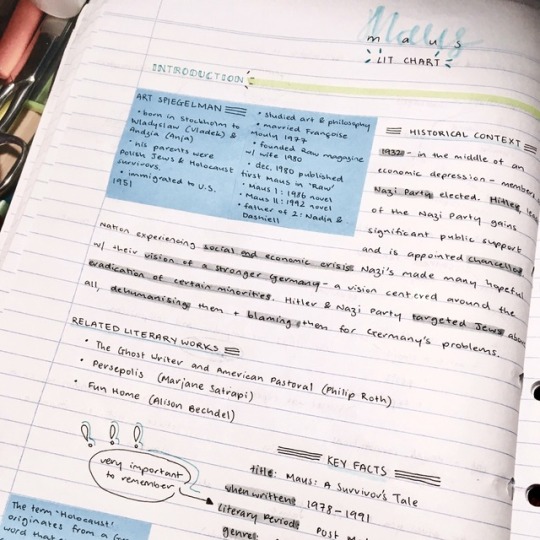 Maus
maus
LIT CHART
INTRODUCTION
ART SPIEGELMAN
• born in Stockholm to
Wladyslaw (Vladek) &
Andzia (Anja)
• his parents were
Polish Jews & Holocaust
survivors.
• immigrated to U.S.
1951
• studied art & philosophy
• married Françoise
Mouly 1977
• founded Raw magazine
w/ wife 1980
• dec. 1980 published
first Maus in 'Raw'
• Maus I: 1986 novel
• Maus II: 1992 novel
• father of 2: Nadja &
Dashiell
HISTORICAL CONTEXT
1932 - in the middle of an
economic depression - members
Nazi Party elected. Hitler,
of the Nazi Party gains
significant public support
and is appointed chancellor
Nation experiencing social and economic crisis Nazi's made many hopeful
w/ their vision of a stronger Germany - a vision centered around the
eradication of certain minorities. Hitler & Nazi Party targeted Jews
all, dehumanising them + blaming them for Germany's problems.
RELATED LITERARY WORKS
• The Ghost Writer and American Pastoral (Philip Roth)
• Persepolis (Marjane Satrapi)
• Fun Home (Alison Bechdel)
!!!
very important
to remember
KEY FACTS
title: Maus: A Survivor's Tale
when written: 1978-1991
literary period: Post
genre:
The term 'Holocaust'
originates from a
word that